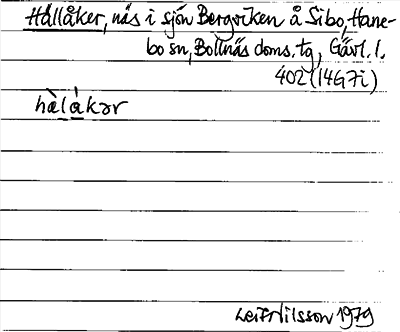 Hållåker, näs i sjön Bergviken å Sibo, Hane-
bo sn, Bollnäs doms. tg, Gävl. l.
402 (14G7i)
hàlákər
Leif Nilsson 1979